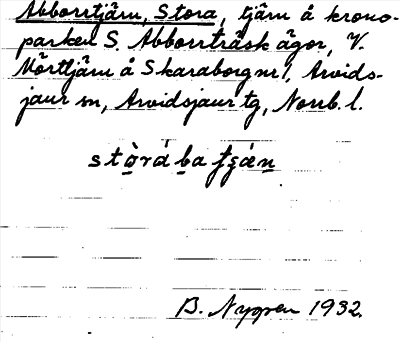 Abborrtjärn, Stora, tjärn å krono-
parken S. Abborrträsk ägor, V.
Mörttjärn å Skaraborg nr 1, Arvids-
jaur sn, Arvidsjaur tg, Norrb. l.
B. Nygren 1932.